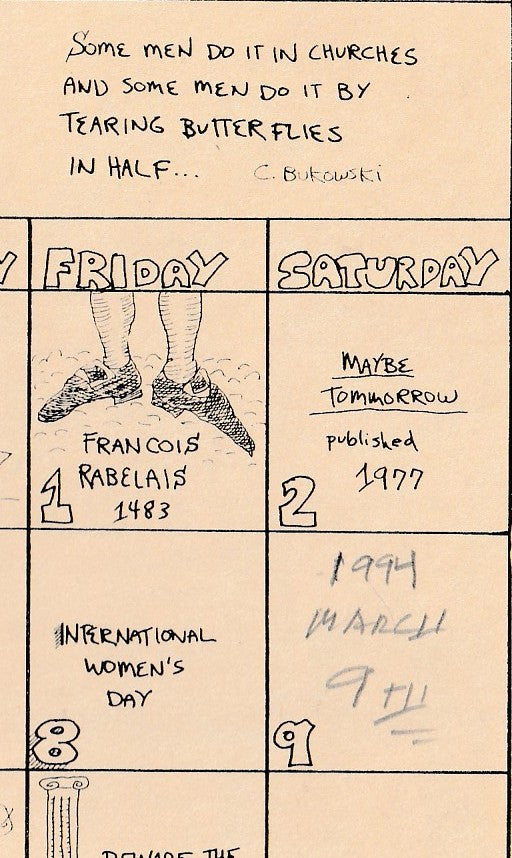 SOME MEN DO IT IN CHURCHES
AND SOME MEN DO IT BY
TEARING BUTTERFLIES
IN HALF... C. BUKOWSKI
Y FRIDAY SATURDAY
FRANCOIS
RABELAIS
1483
1
MAYBE
TOMMORROW
published
1977
2
INTERNATIONAL
WOMEN'S
DAY
8
1994
MARCH
9TH
9
BEWARE THE